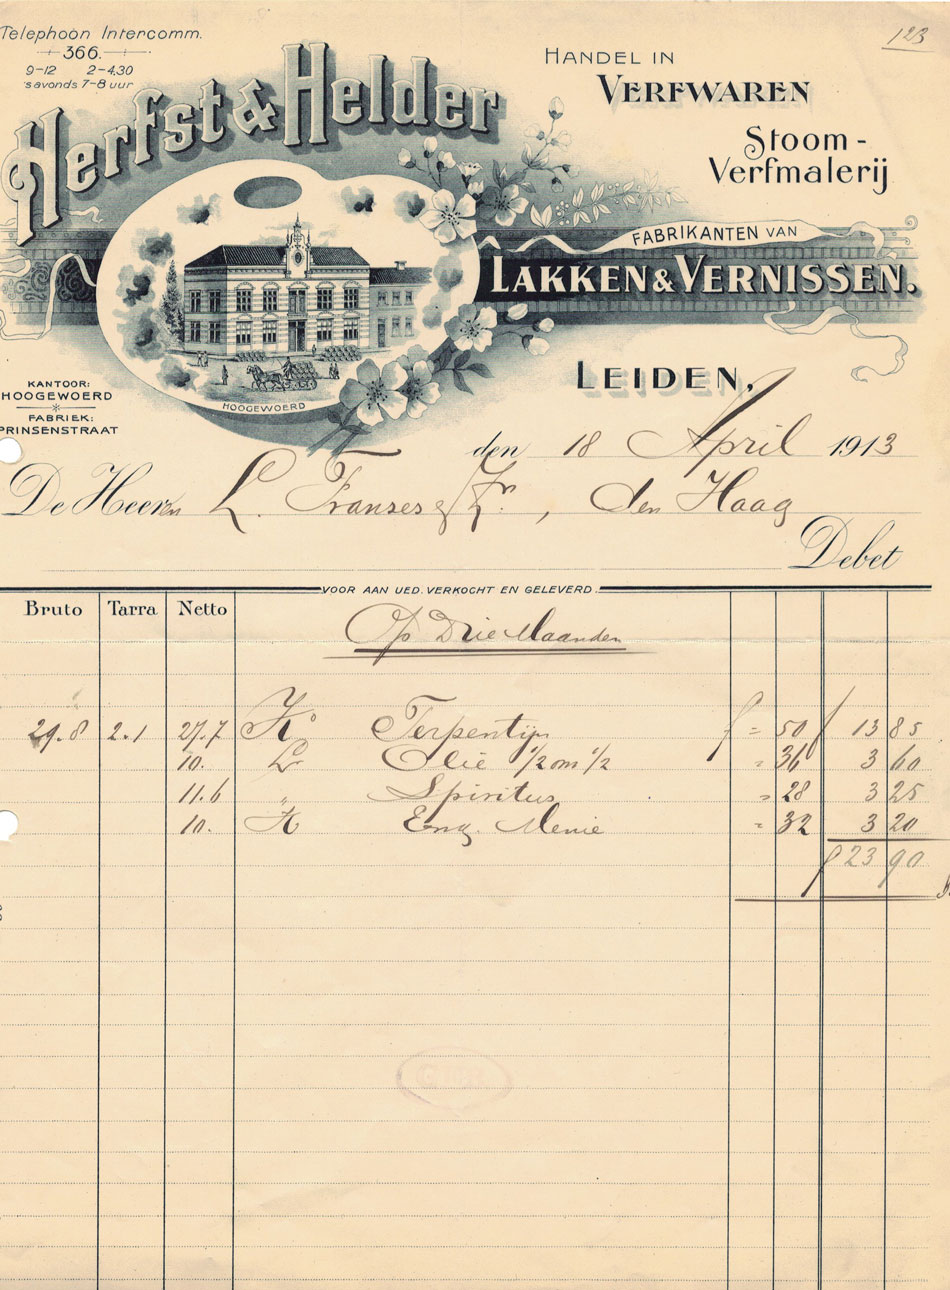 123
Telephoon Intercomm.
366.
9-12 2-4.30
's avonds 7-8 uur
Herfst & Helder
HANDEL IN
VERFWAREN
Stoom-
Verfmalerij
FABRIKANTEN VAN
LAKKEN & VERNISSEN.
LEIDEN,
KANTOOR:
HOOGEWOERD
FABRIEK:
PRINSENSTRAAT
HOOGEWOERD
den 18 April 1913
De Heeren L. Franses & Zn., den Haag
Debet
VOOR AAN UED. VERKOCHT EN GELEVERD.
Bruto Tarra Netto
Op Drie Maanden
29.8 2.1 27.7 Ko Terpentijn f = 50 f 13 85
10. L Olie 1/2 om 1/2 " 36 3 60
11.6 " Spiritus " 28 3 25
10. K Eng. Menie " 32 3 20
f 23 90